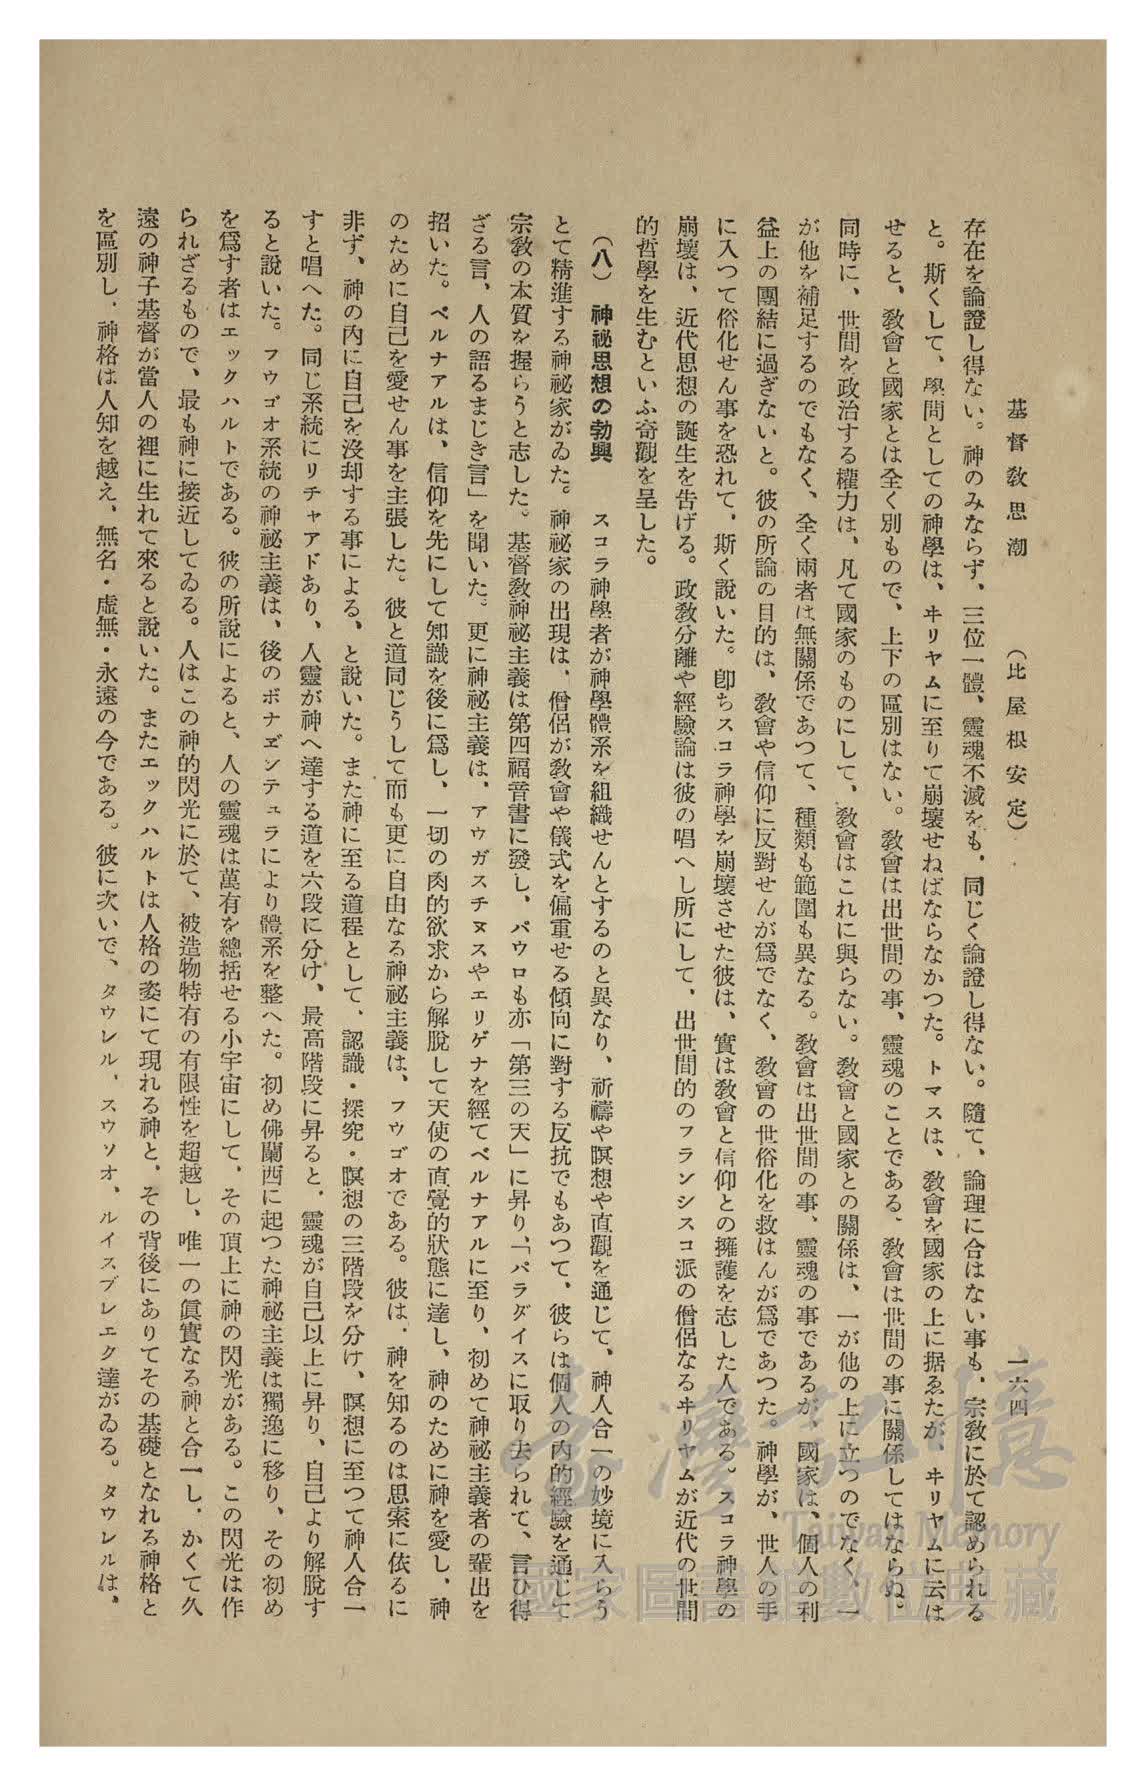 基督敎思潮　　（比屋根安定）　　一六四
存在を論證し得ない。神のみならず、三位一體、靈魂不滅をも、同じく論證し得ない。隨て、論理に合はない事も、宗敎に於て認められる
と。斯くして、學問としての神學は、ヰリヤムに至りて崩壞せねばならなかつた。トマスは、敎會を國家の上に据ゑたが、ヰリヤムに云は
せると、敎會と國家とは全く別もので、上下の區別はない。敎會は出世間の事、靈魂のことである。敎會は世間の事に關係してはならぬ。
同時に、世間を政治する權力は、凡て國家のものにして、敎會はこれに與らない。敎會と國家との關係は、一が他の上に立つのでなく、一
が他を補足するのでもなく、全く兩者は無關係であつて、種類も範圍も異なる。敎會は出世間の事、靈魂の事であるが、國家は、個人の利
益上の團結に過ぎないと。彼の所論の目的は、敎會や信仰に反對せんが爲でなく、敎會の世俗化を救はんが爲であつた。神學が、世人の手
に入つて俗化せん事を恐れて、斯く說いた。卽ちスコラ神學を崩壞させた彼は、實は敎會と信仰との擁護を志した人である。スコラ神學の
崩壞は、近代思想の誕生を告げる。政敎分離や經驗論は彼の唱へし所にして、出世間的のフランシスコ派の僧侶なるヰリヤムが近代の世間
的哲學を生むといふ奇觀を呈した。
（八）　神祕思想の勃興　　スコラ神學者が神學體系を組織せんとするのと異なり、祈禱や瞑想や直觀を通じて、神人合一の妙境に入らう
とて精進する神祕家がゐた。神祕家の出現は、僧侶が敎會や儀式を偏重せる傾向に對する反抗でもあつて、彼らは個人の內的經驗を通じて
宗敎の本質を握らうと志した。基督敎神祕主義は第四福音書に發し、パウロも亦「第三の天」に昇り、「パラダイスに取り去られて、言ひ得
ざる言、人の語るまじき言」を聞いた。更に神祕主義は、アウガスチヌスやエリゲナを經てベルナアルに至り、初めて神祕主義者の輩出を
招いた。ベルナアルは、信仰を先にして知識を後に爲し、一切の肉的欲求から解脫して天使の直覺的狀態に達し、神のために神を愛し、神
のために自己を愛せん事を主張した。彼と道同じうして而も更に自由なる神祕主義は、フウゴオである。彼は、神を知るのは思索に依るに
非ず、神の內に自己を沒却する事による、と說いた。また神に至る道程として、認識・探究・瞑想の三階段を分け、瞑想に至つて神人合一
すと唱へた。同じ系統にリチャアドあり、人靈が神へ達する道を六段に分け、最高階段に昇ると、靈魂が自己以上に昇り、自己より解脫す
ると說いた。フウゴオ系統の神祕主義は、後のボナヹンテュラにより體系を整へた。初め佛蘭西に起つた神祕主義は獨逸に移り、その初め
を爲す者はエックハルトである。彼の所說によると、人の靈魂は萬有を總括せる小宇宙にして、その頂上に神の閃光がある。この閃光は作
られざるもので、最も神に接近してゐる。人はこの神的閃光に於て、被造物特有の有限性を超越し、唯一の眞實なる神と合一し、かくて久
遠の神子基督が當人の裡に生れて來ると說いた。またエックハルトは人格の姿にて現れる神と、その背後にありてその基礎となれる神格と
を區別し、神格は人知を越え、無名・虛無・永遠の今である。彼に次いで、タウレル、スウソオ、ルイスブレエク達がゐる。タウレルは、
臺灣記憶
Taiwan Memory
國家圖書館數位典藏